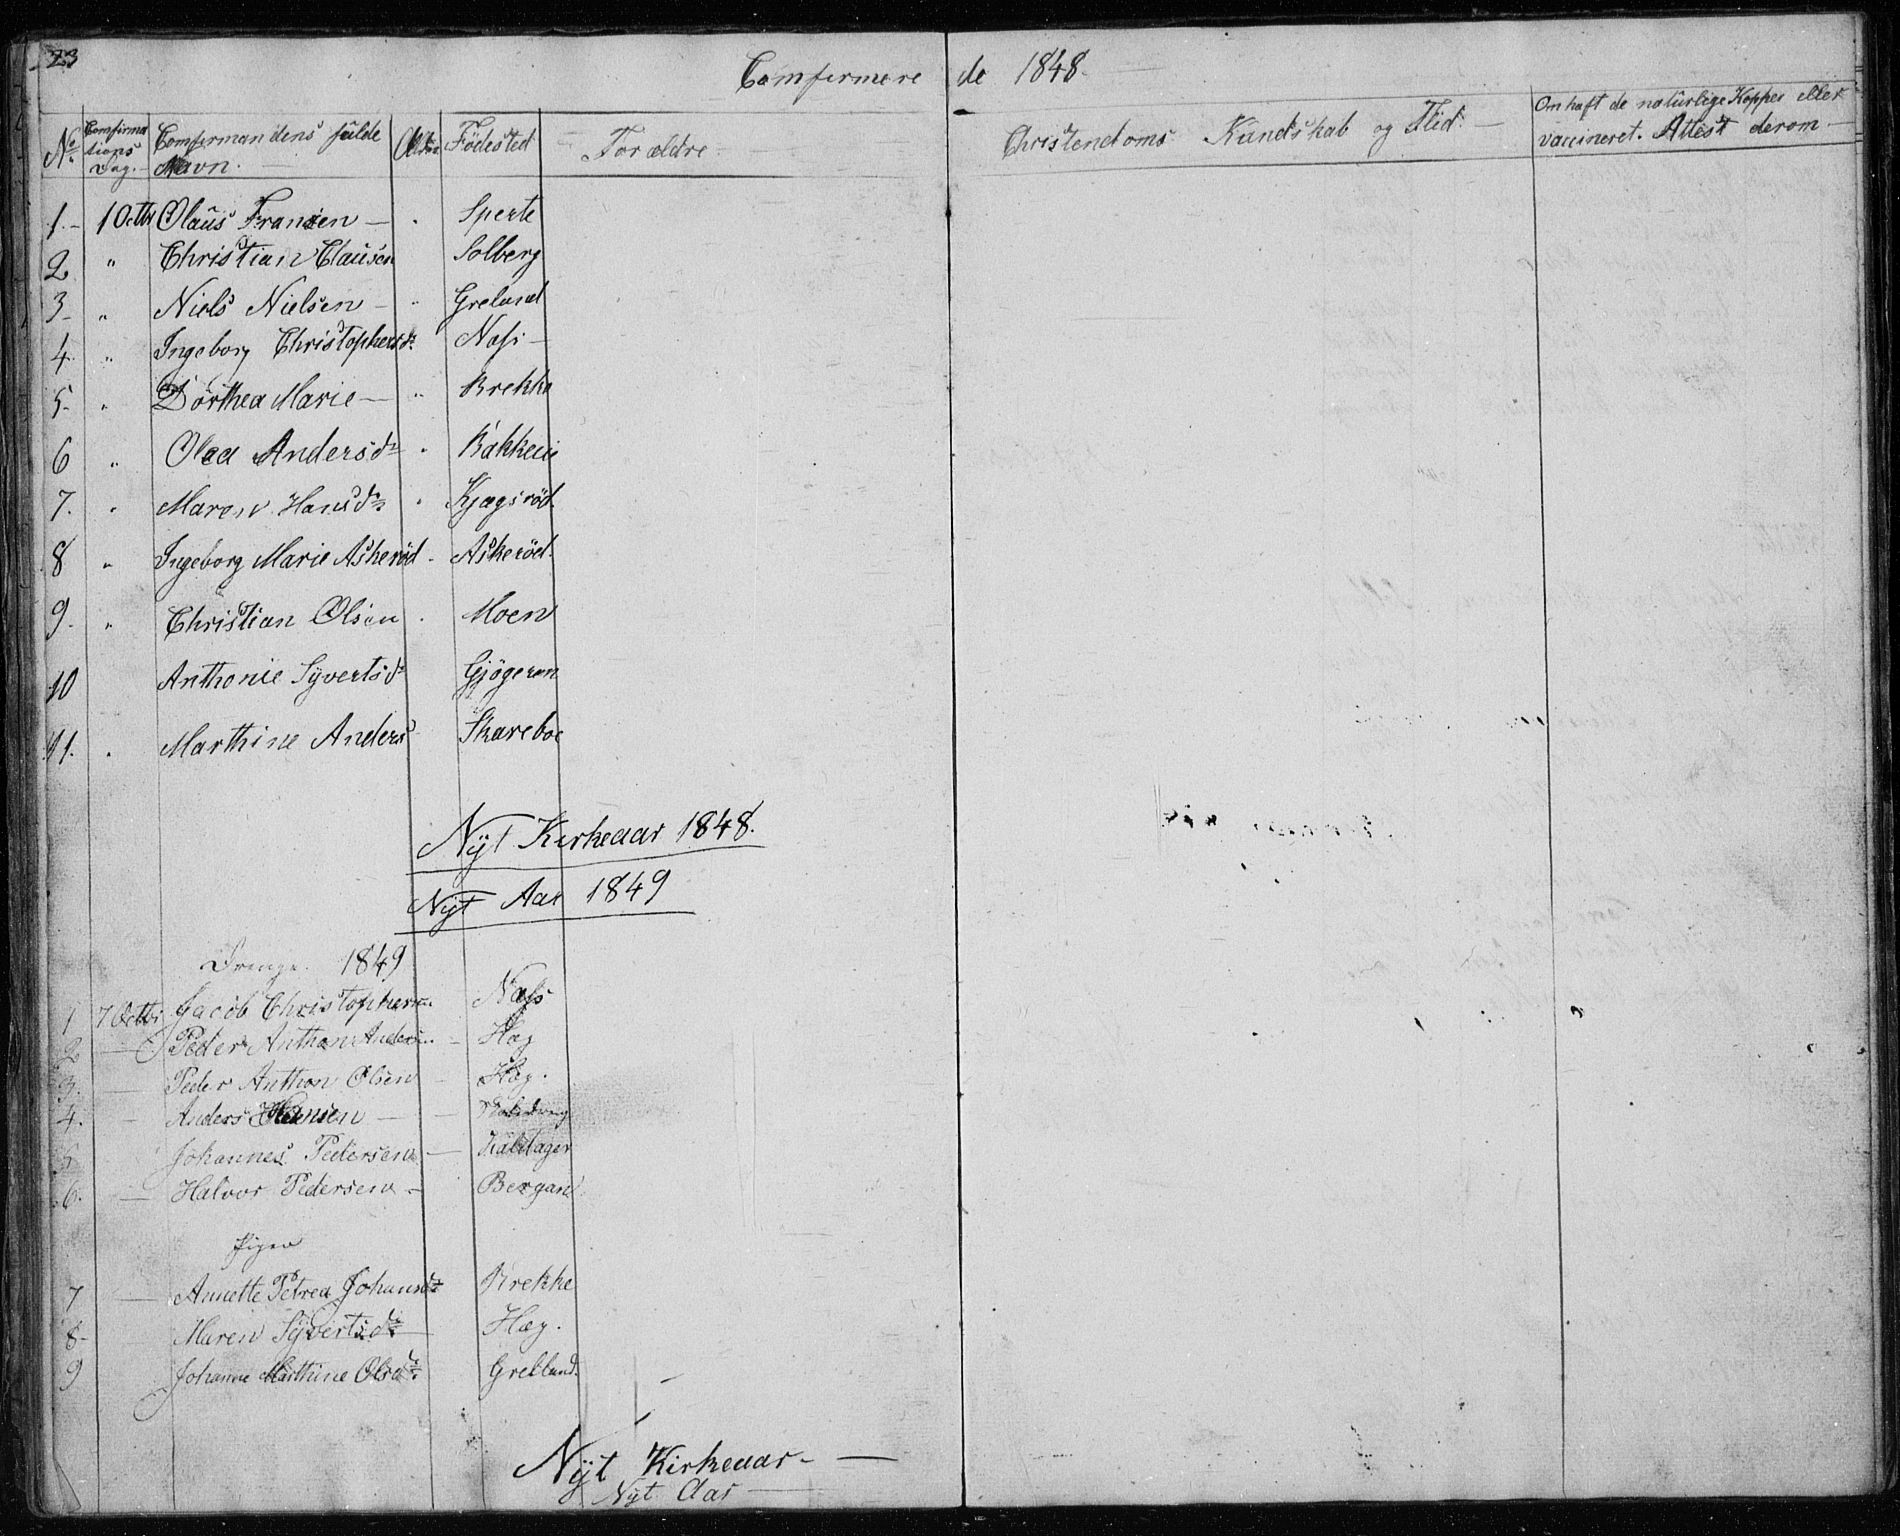 23
Comfirmere de 1848.
No. Comfirmations Dag. Comfirmandens fulde Navn. Alder Fødested Forældre Christendoms Kundskab og Flid. Om haft de naturlige Kopper eller vaccineret. Attest derom
1. 1 Octbr Olaus Fransen Sperte
2 " Christian Clausen Solberg
3 " Niels Nielsen Grelund
4 " Ingeborg Christophersdr. Næss
5 " Dorthea Marie Brekke
6 " Olea Andersdr Bakken
7. " Maren Hansdr Kjøgsröd
8 " Ingeborg Marie Askeröd Askeröd.
9. " Christian Olsen Moen
10 Anthonie Syvertsdr Gjögeren
11. " Marthine Anders Skareboe
Nyt Kirkeaar 1848.
Nyt Aar 1849
Drenge 1849
1 7 Octbr Jacob Christophersen Næss
2 Peder Anthon Andersen Høg
3. Peder Anthon Olsen Høg.
4. Anders Hansen
5 Johannes Pedersen Kaldager
6. Halvor Pedersen Bergan
Piger
7 Annette Petrea Johansdr Brekke
8 Maren Syvertsdr Høg.
9 Johanne Mathine Olsdr Grellund.
Nyt Kirkeaar
Nyt Aar